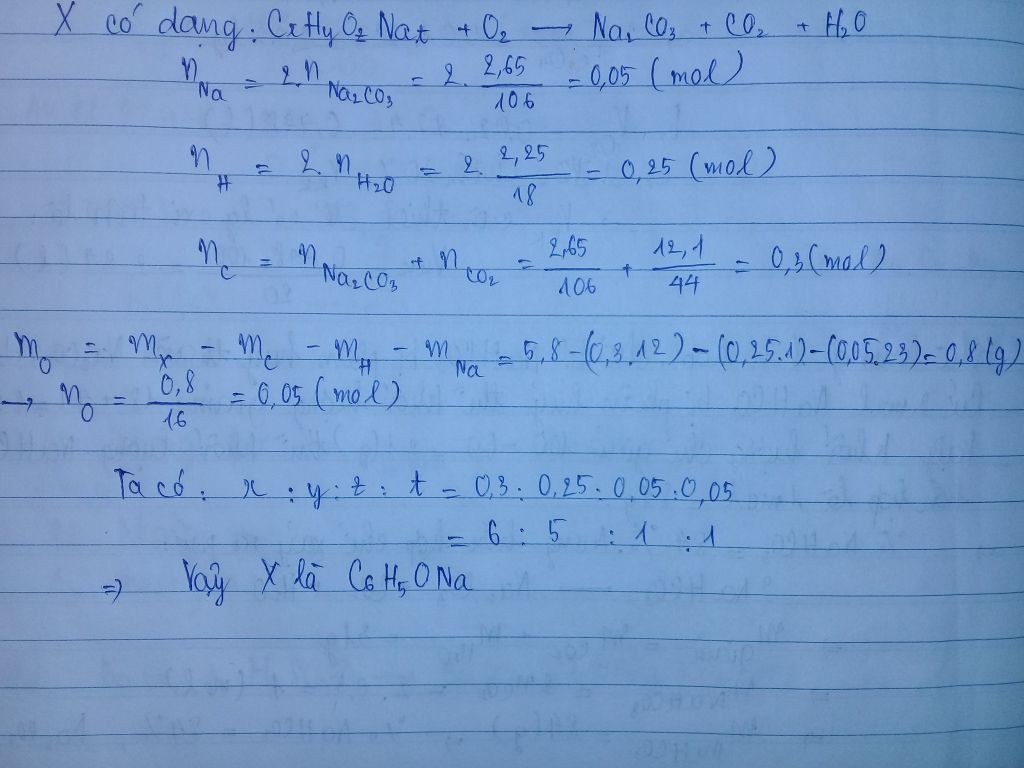 X có dạng: CxHyOzNat + O2 → Na2CO3 + CO2 + H2O
nNa = 2.nNa2CO3 = 2. 2,65/106 = 0,05 (mol)
nH = 2.nH2O = 2. 2,25/18 = 0,25 (mol)
nC = nNa2CO3 + nCO2 = 2,65/106 + 12,1/44 = 0,3 (mol)
mO = mX - mC - mH - mNa = 5,8-(0,3.12)-(0,25.1)-(0,05.23)=0,8(g)
→ nO = 0,8/16 = 0,05 (mol)
Ta có: x : y : z : t = 0,3 : 0,25 : 0,05 : 0,05
= 6 : 5 : 1 : 1
⇒ Vậy X là C6H5ONa